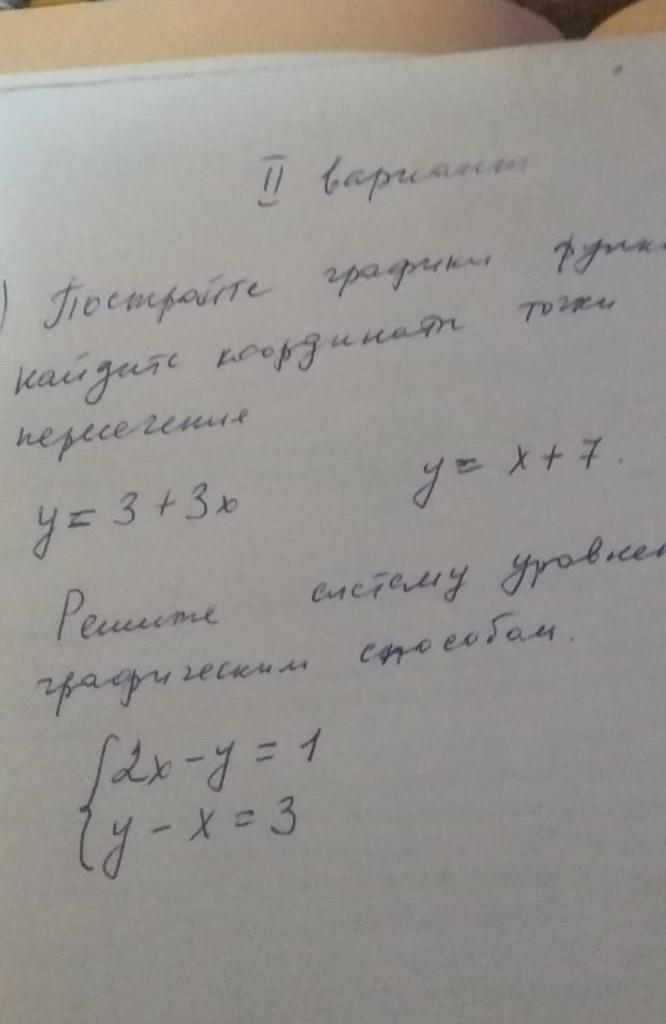 II вариант
) Постройте графики функ
найдите координаты точки
пересечения
y = 3 + 3x y = x + 7.
Решите систему уровнен
графическим способом.
2x - y = 1
y - x = 3